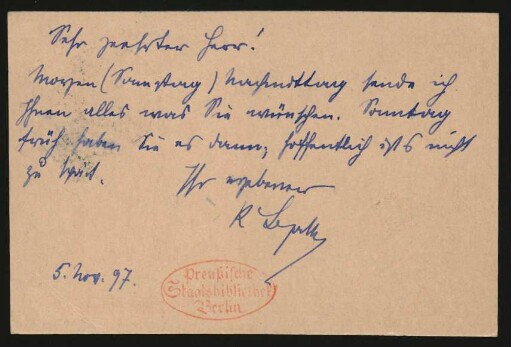 Sehr geehrter Herr!
Morgen (Sonnabend) Nachmittag sende ich
Ihnen alles was Sie wünschen. Sonntag
früh haben Sie es dann; hoffentlich ist's nicht
zu spät.
Ihr ergebener
R
5. Nov. 97.
Preußische
Staatsbibliothek
Berlin